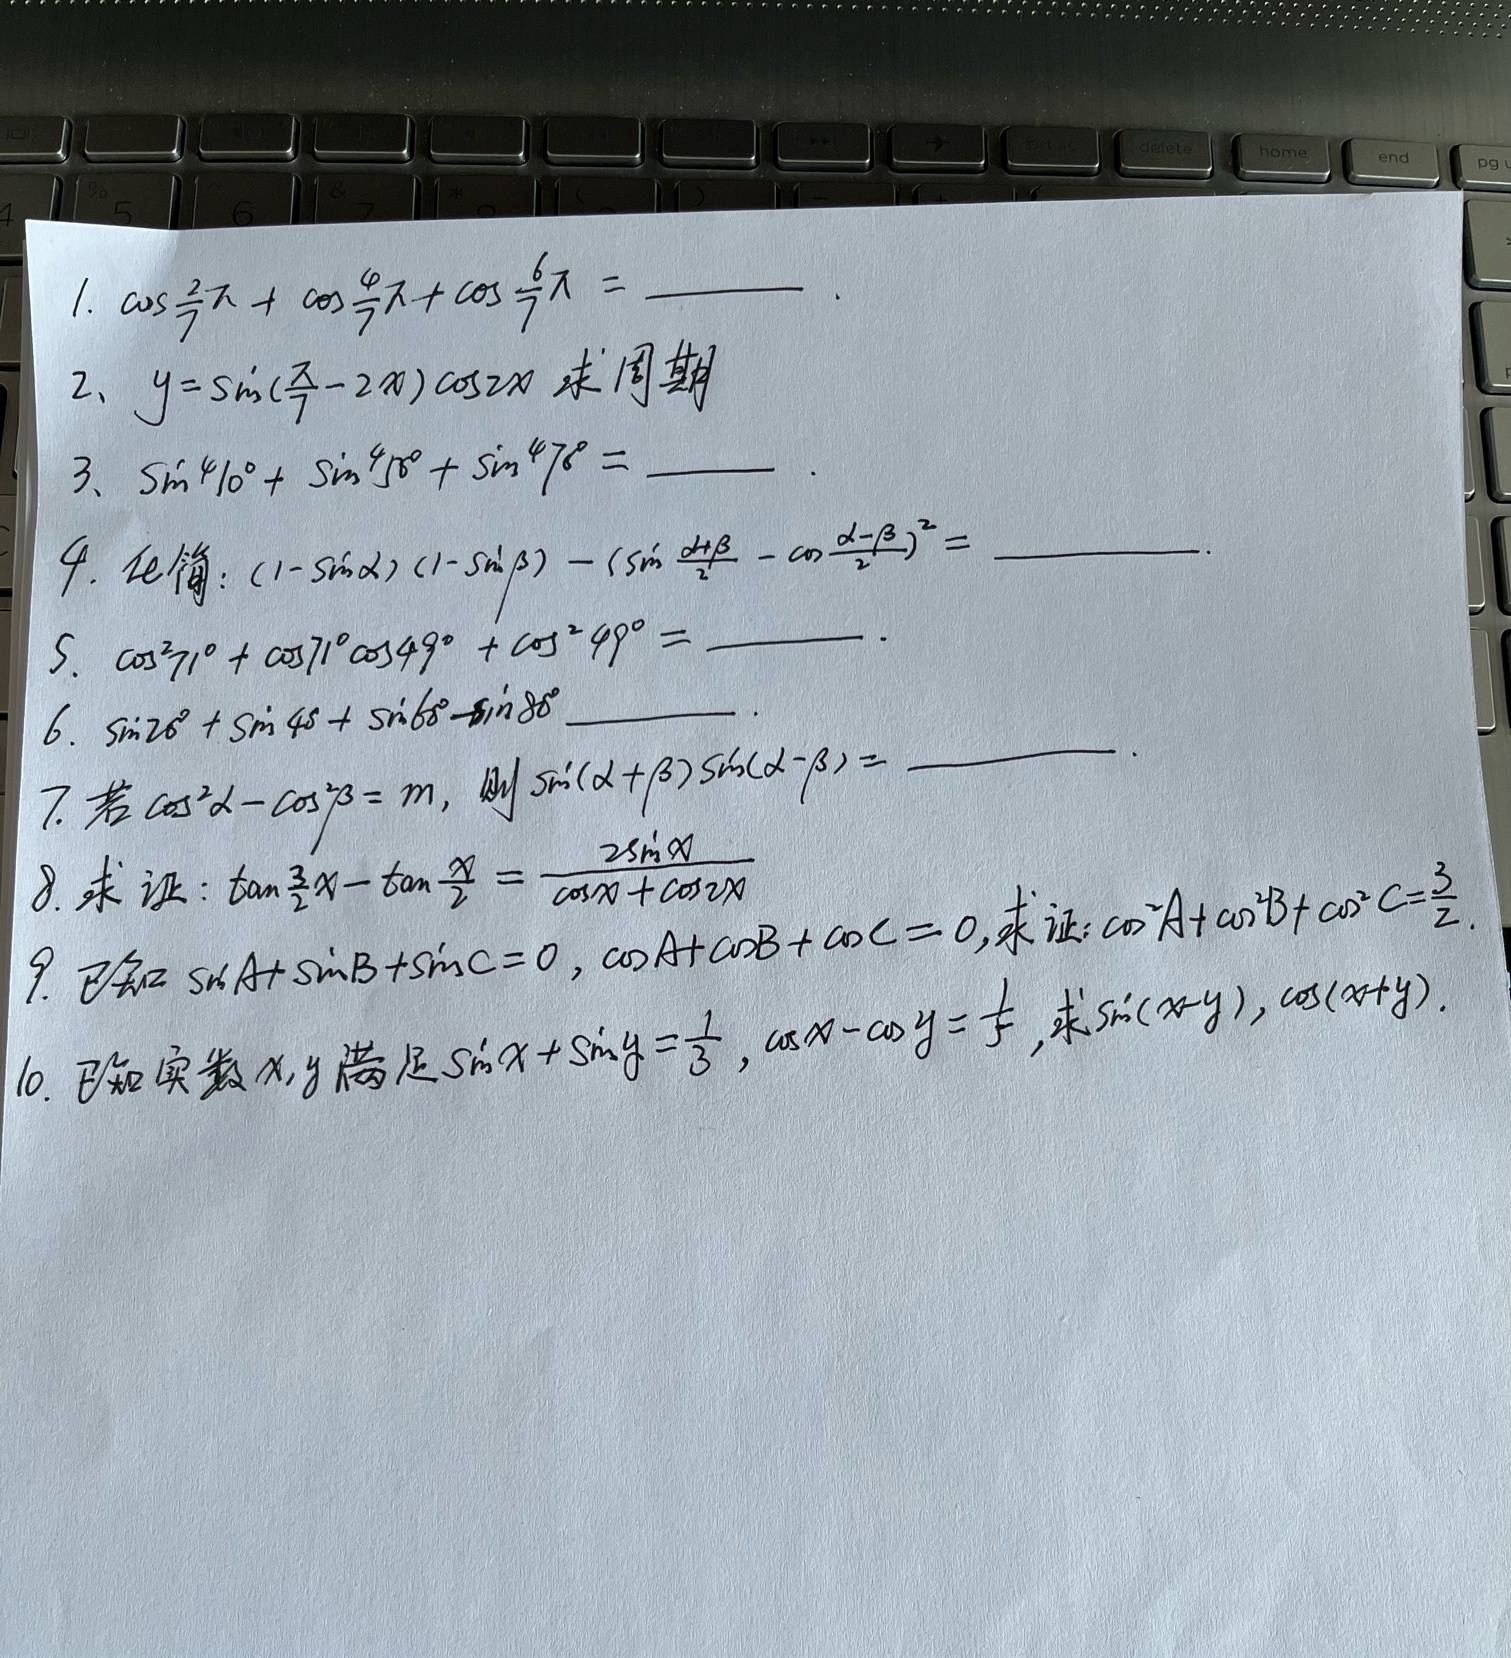 delete
home
end
pg u
%
5
6
&
7
*
1. cos 2/7 π + cos 4/7 π + cos 6/7 π = ______ .
2、 y = sin(π/7 - 2x) cos2x 求周期
3、 sin⁴10° + sin⁴50° + sin⁴70° = ______ .
4. 化简: (1-sinα)(1-sinβ) - (sin (α+β)/2 - cos (α-β)/2)² = ______ .
5. cos²71° + cos71°cos49° + cos²49° = ______ .
6. sin20° + sin40 + sin60° - sin80° ______ .
7. 若 cos²α - cos²β = m, 则 sin(α+β)sin(α-β) = ______ .
8. 求证: tan 3/2 x - tan x/2 = 2sinx / (cosx + cos2x)
9. 已知 sinA + sinB + sinC = 0, cosA + cosB + cosC = 0, 求证: cos²A + cos²B + cos²C = 3/2.
10. 已知实数 x, y 满足 sinx + siny = 1/3, cosx - cosy = 1/5, 求 sin(x-y), cos(x+y).